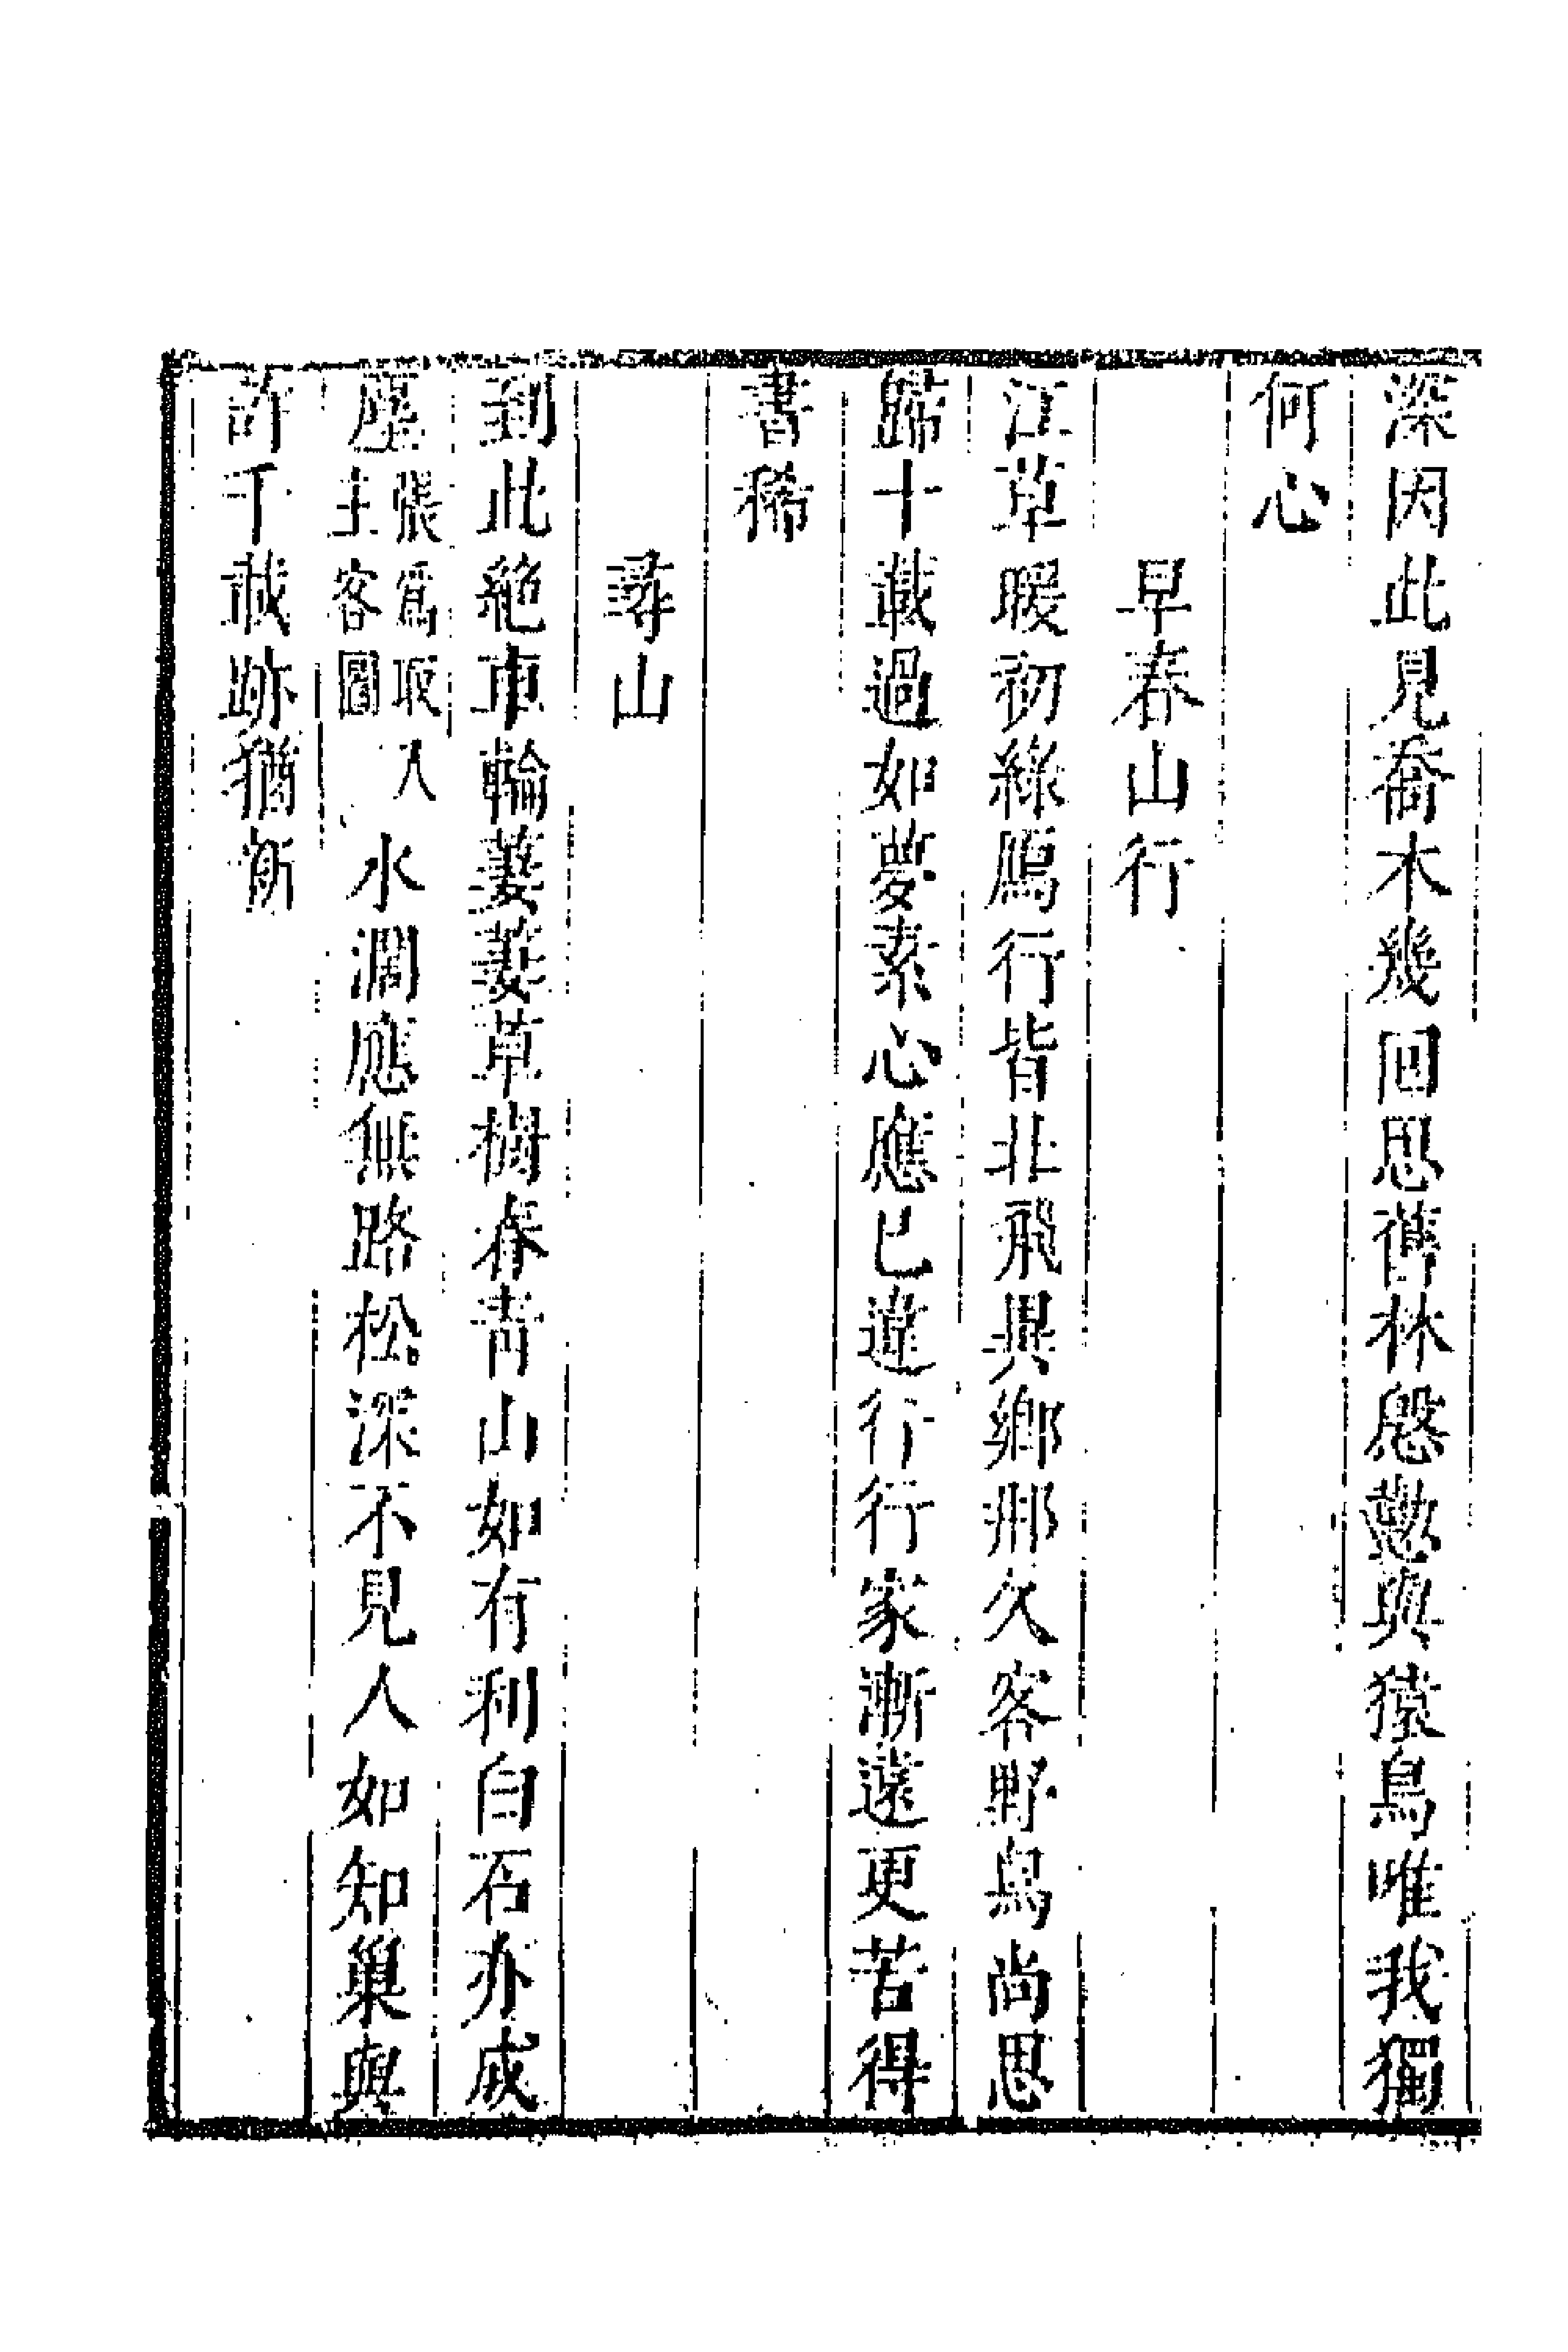 深因此見喬木幾回思舊林慇懃與猿鳥唯我獨
何心
早春山行
江草暖初綠鴈行皆北飛異鄉那久客野鳥尚思
歸十載過如夢素心應已違行行家漸遠更苦得
書稀
尋山
到此絶車輪萋萋草樹春青山如有利白石亦成
塵張爲取入主客圖水濶應無路松深不見人如知巢與
許千載跡猶新